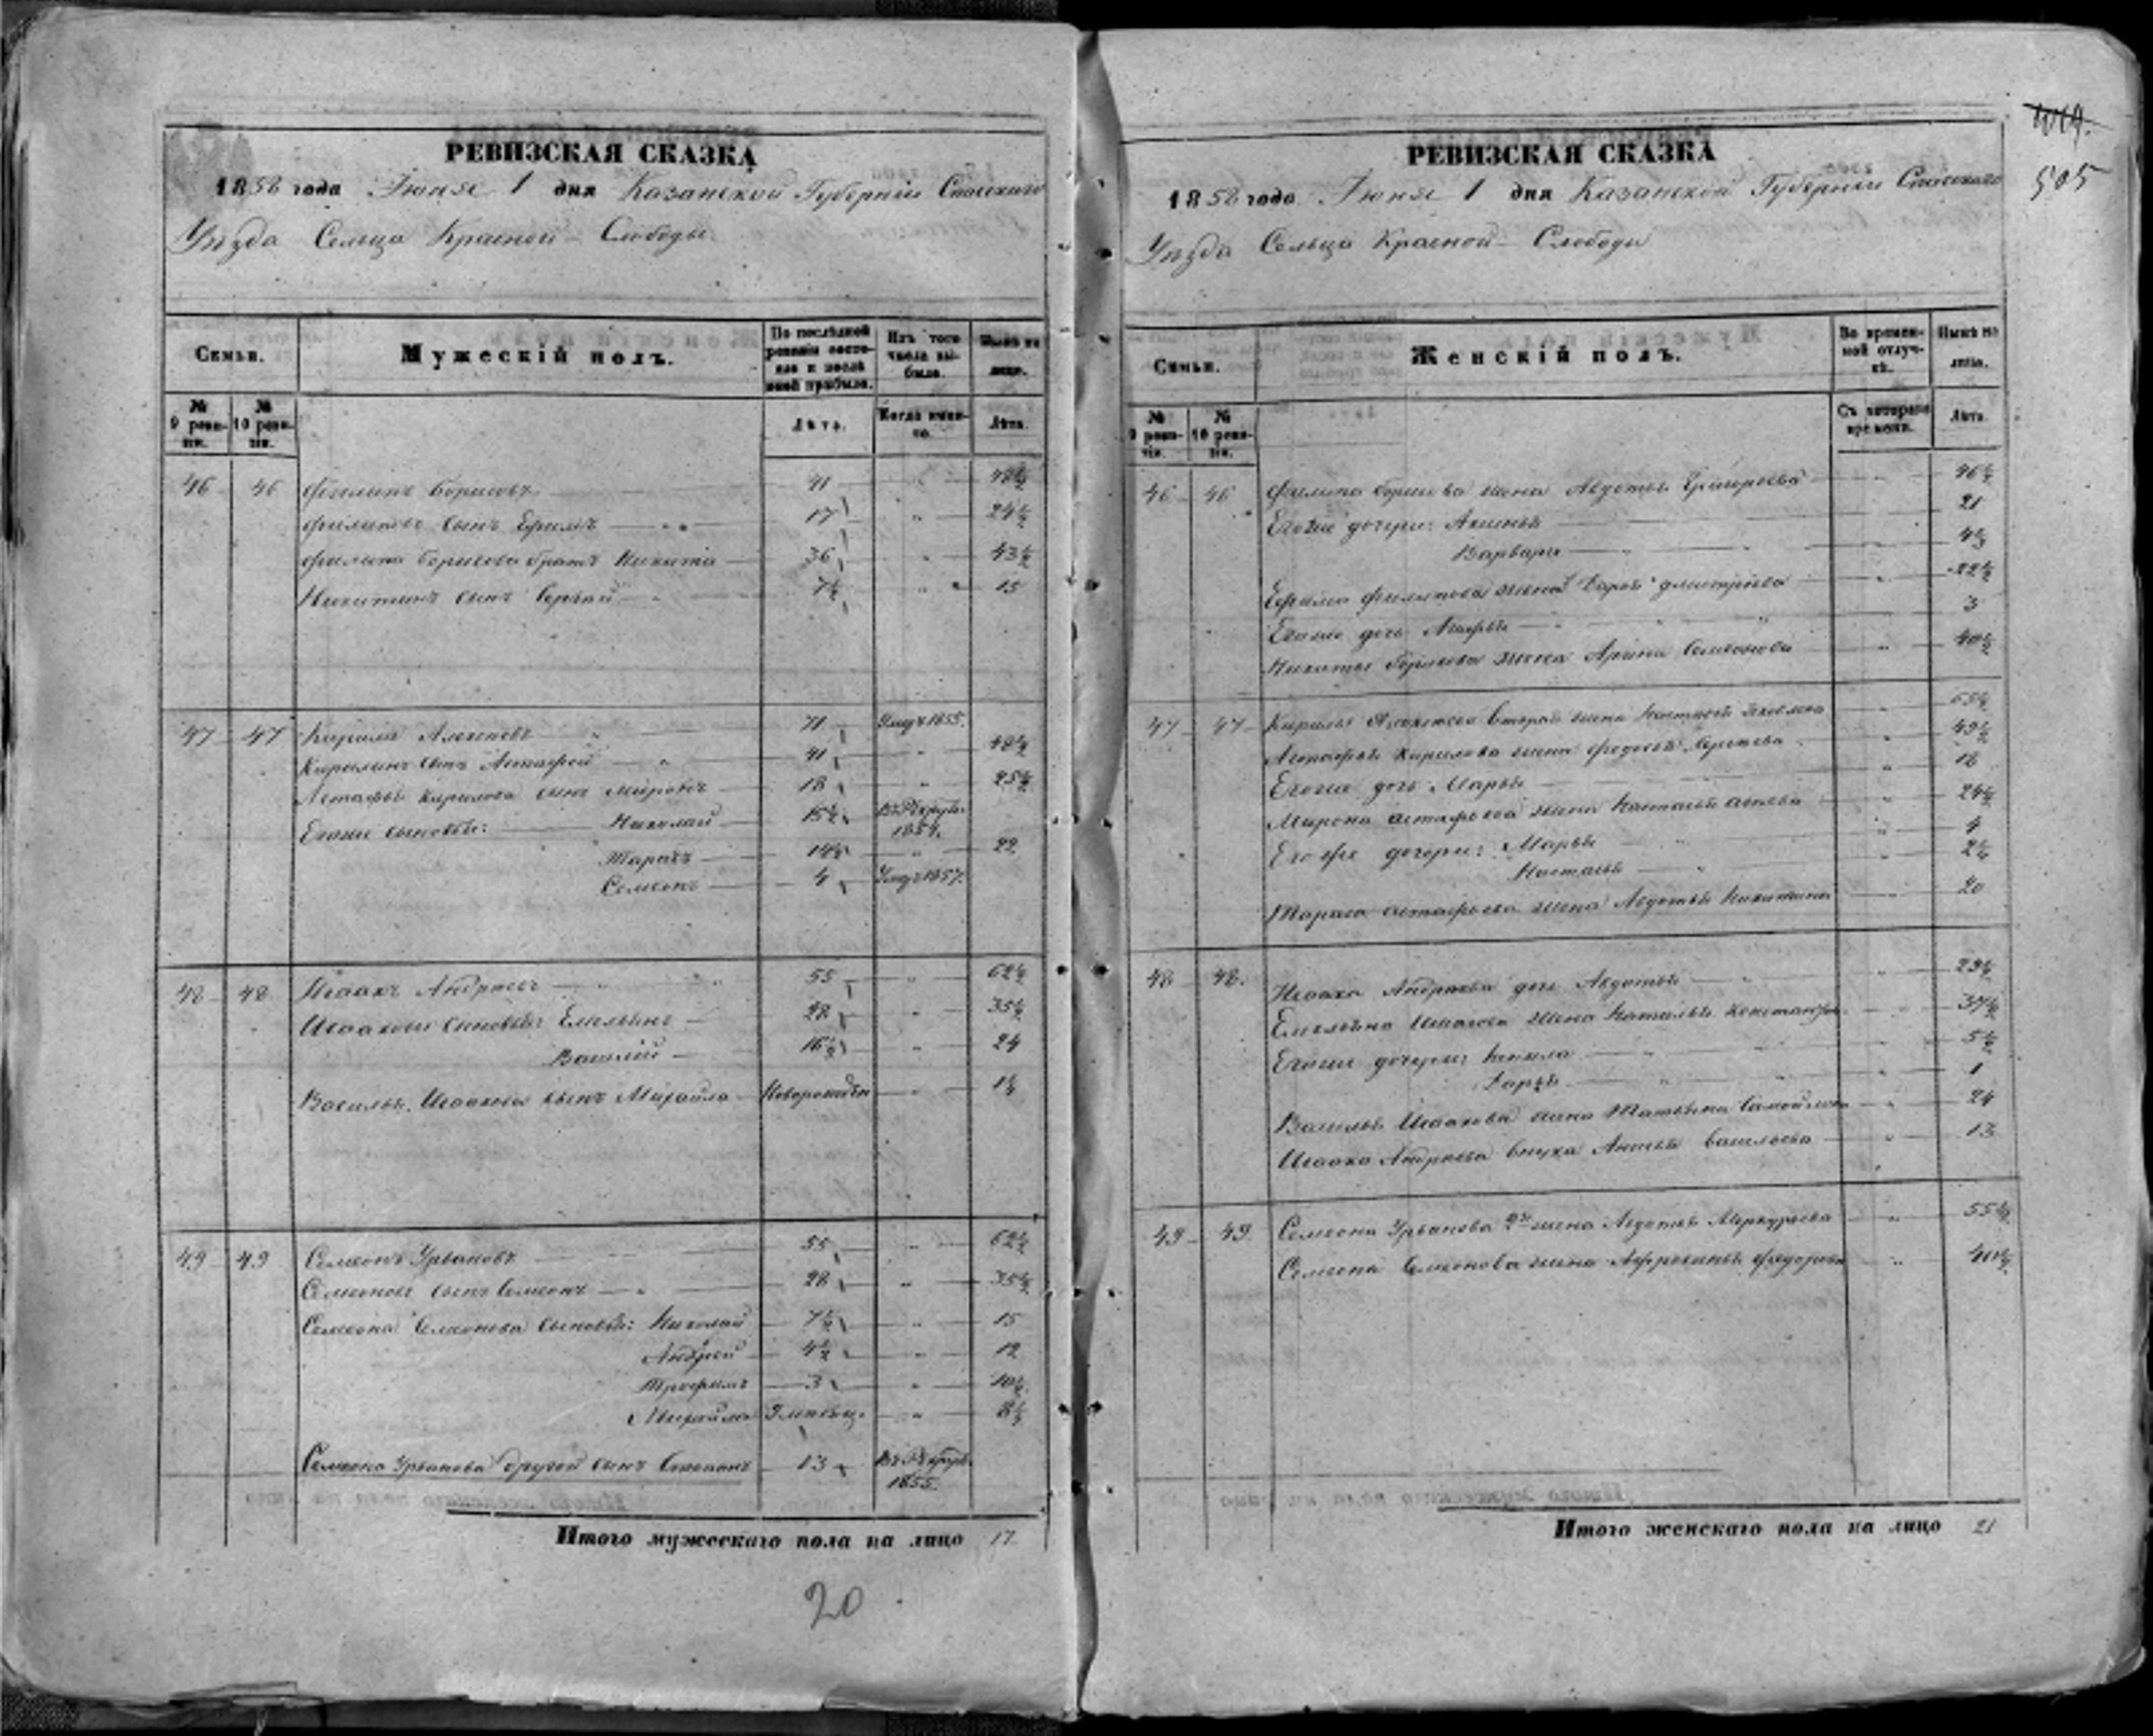 РЕВИЗСКАЯ СКАЗКА
1858 года Июня 1 дня Казанской Губерніи Спасскаго
Уѣзда Сельца Красной Слободы
Семьи.
Мужескій полъ.
По послѣдней ревизіи состояло и послѣ оной прибыло.
Изъ того числа выбыло.
Нынѣ на лицо.
№ 9 ревизіи.
№ 10 ревизіи.
Лѣта.
Когда именно.
Лѣта.
46 46 Филипъ Борисовъ 41 48½
Филиповъ сынъ Ефимъ 17 24½
Филипа Борисова братъ Никита 36 43½
Никитинъ сынъ Сергей 7½ 15
47 47 Кирила 71 1855.
Кирилинъ сынъ Астафей 41 48½
Астафья Кирилова сынъ Миронъ 18 25½
Егоже сыновья: Николай 15½ 1854.
Тарасъ 14½ 22
Семенъ 4 1857.
48 48 Исаакъ Андреевъ 55 62½
Исааковы сыновья: Емельянъ 28 35½
Василій 16½ 24
Василья Исаакова сынъ Михайла Новорожден 1½
49 49 Семенъ Урвановъ 55 62½
Семеновъ сынъ Семенъ 28 35½
Семена Семенова сыновья: Николай 7½ 15
Андрей 4½ 12
Трофимъ 3 10½
Михайла 8½
Семена Урванова другой сынъ Степанъ 13 1855.
Итого мужескаго пола на лицо 17
20
505
РЕВИЗСКАЯ СКАЗКА
1858 года Июня 1 дня Казанской Губерніи Спасскаго
Уѣзда Сельца Красной Слободы
Семьи.
Женскій полъ.
Во временной отлучкѣ.
Нынѣ на лицо.
№ 9 ревизіи.
№ 10 ревизіи.
Съ котораго времени.
Лѣта.
46 46 Филипа Борисова жена Авдотья Григорьева 46½
Егоже дочери: Аксинья 21
Варвара
Ефима Филипова жена Дарья Дмитріева 22½
Егоже дочь 3
Никиты Борисова жена Арина Семенова 40½
47 47 Кирилы вторая жена
Астафья Кирилова жена Федосья 49½
Егоже дочь Марья 18
Мирона Астафьева жена Наталья 24½
Егоже дочери: Марья 4
Настасья 2½
Тараса Астафьева жена Авдотья Никитина 20
48 48 Исаака Андреева дочь Авдотья 29½
Емельяна Исаакова жена Наталья 37½
Егоже дочери: 5½
Дарья 1
Василья Исаакова жена Татьяна Самойлова 24
Исаака Андреева внука Анисья Васильева 13
49 49 Семена Урванова 2я жена Авдотья Меркурьева 55½
Семена Семенова жена Афросинья Федорова 40½
Итого женскаго пола на лицо 21